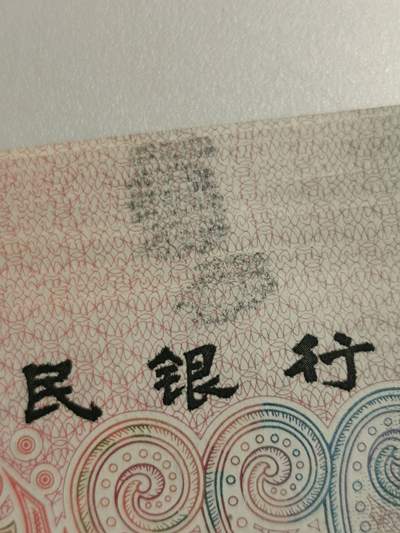 民银行